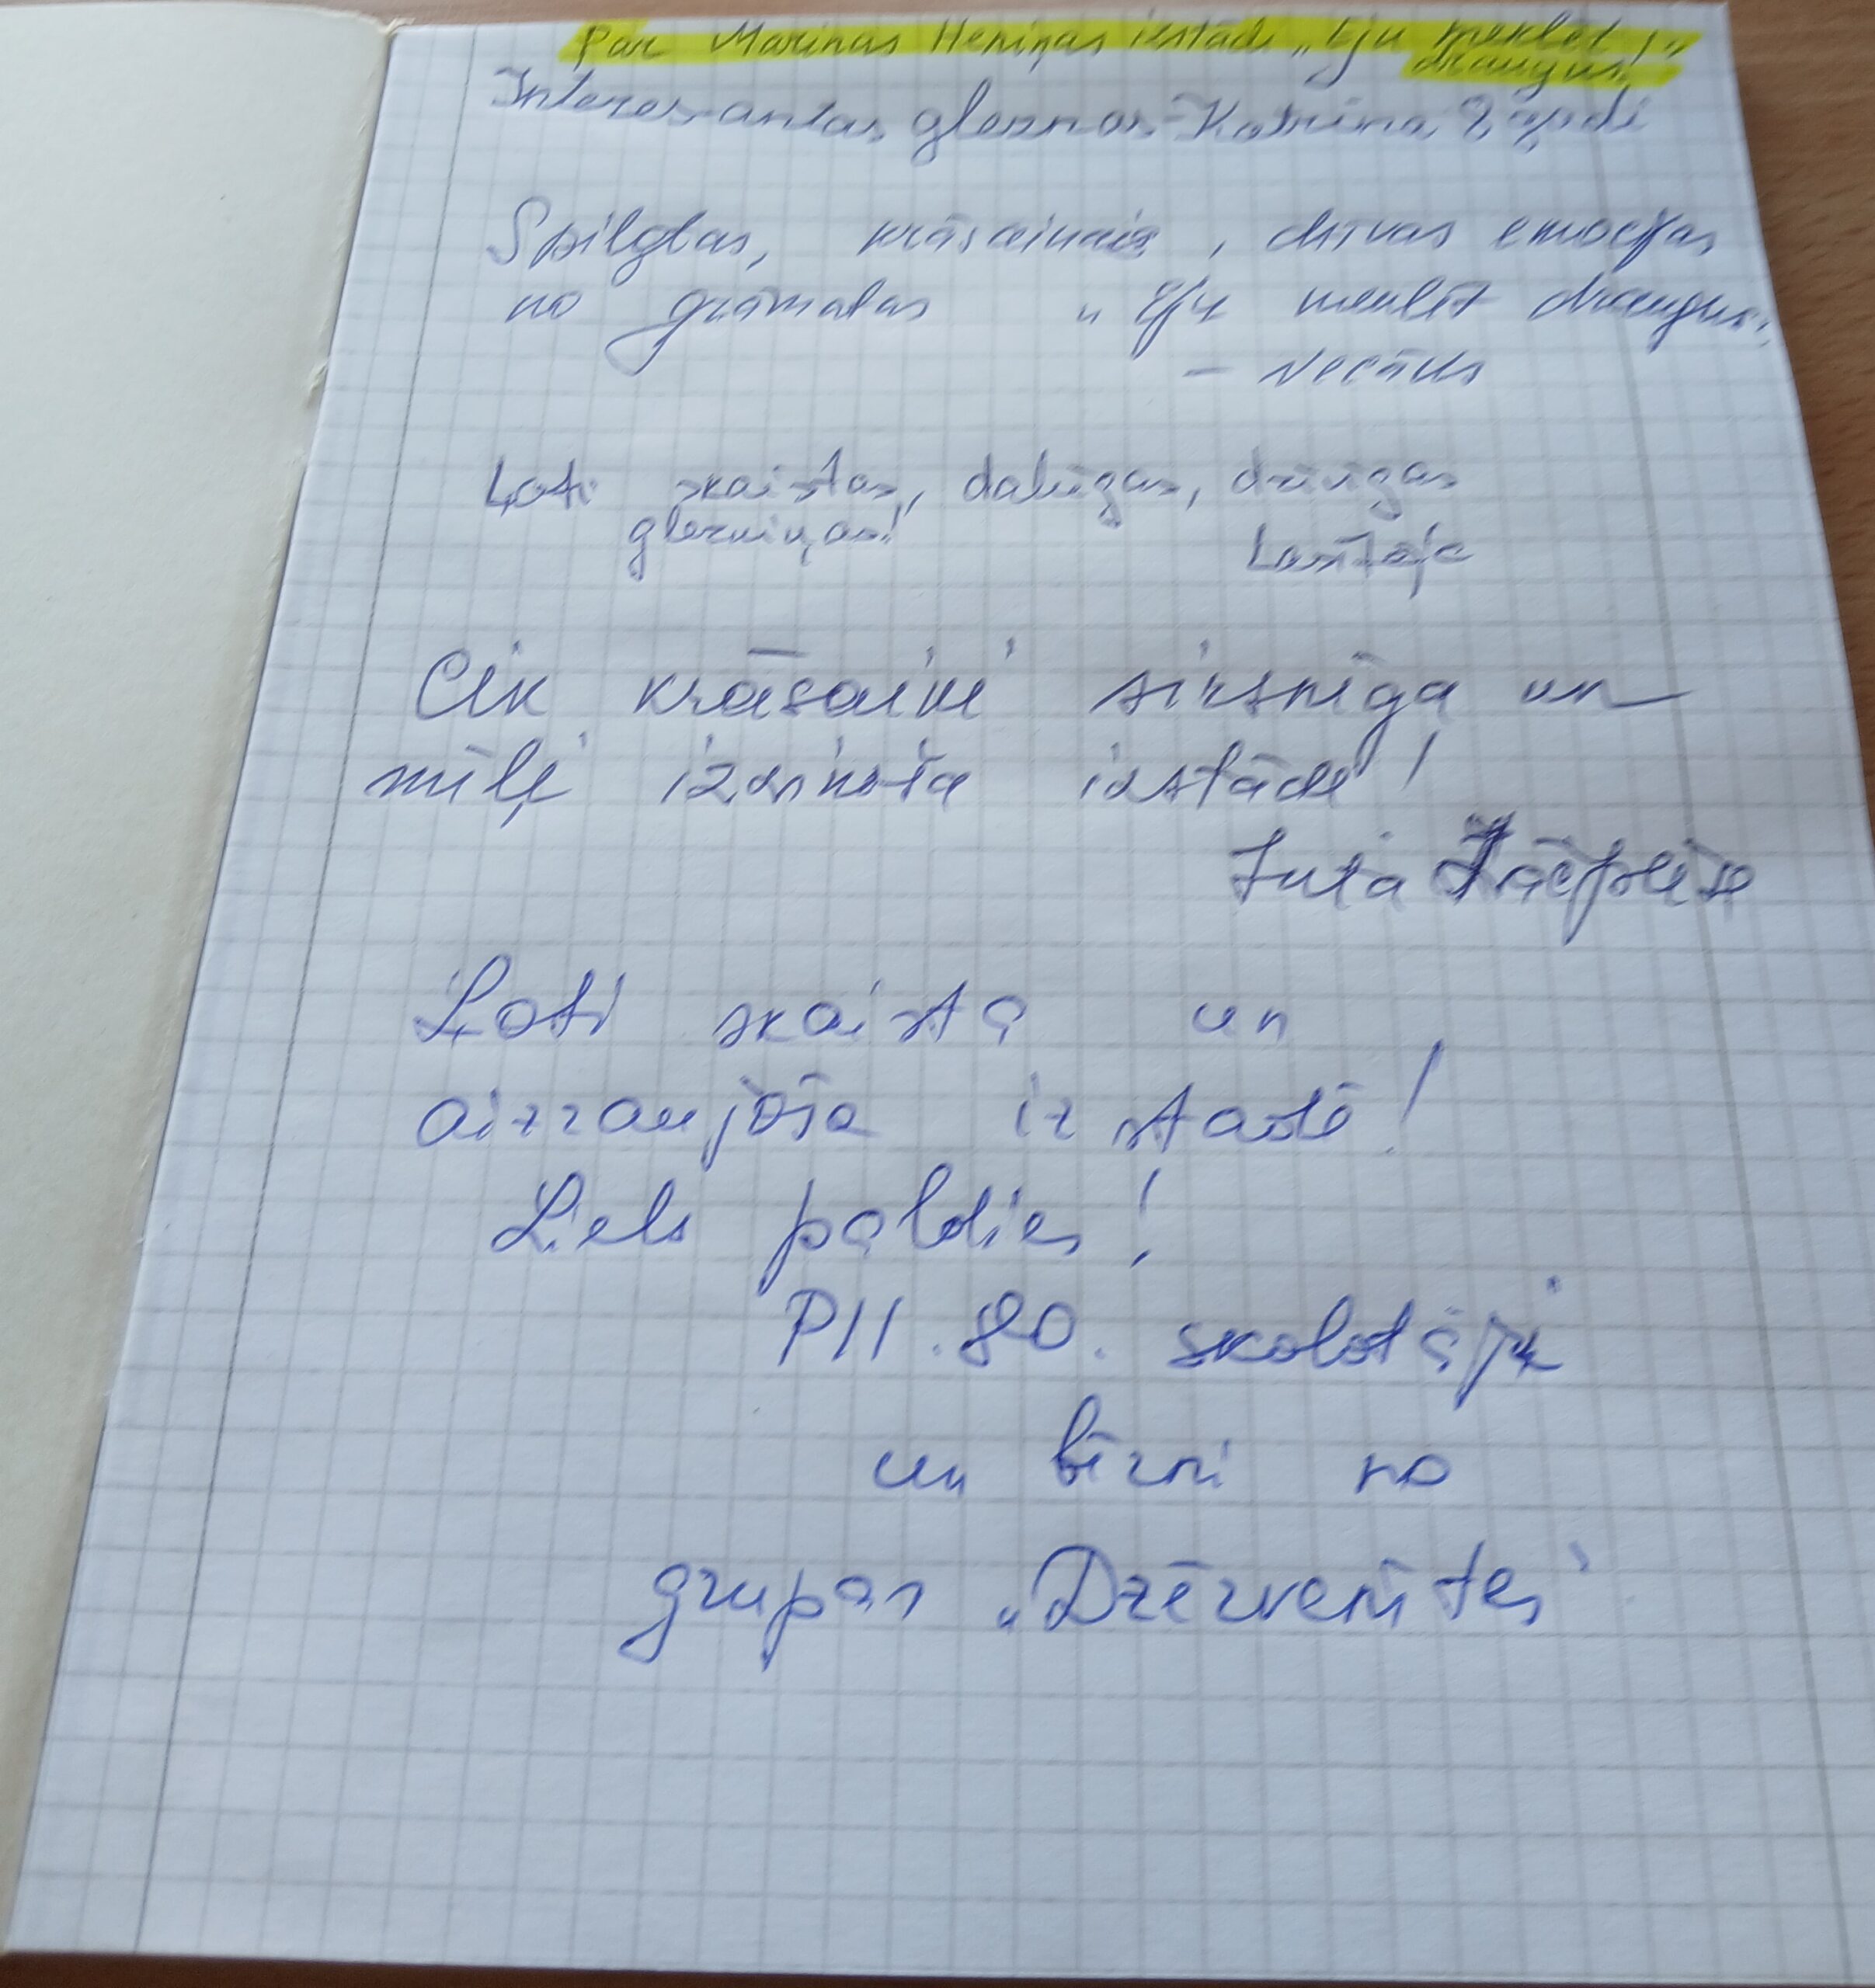 Par Marinas Heniņas izstādi „Eju meklēt
draugus!"
Interesantas gleznas - Katrina
Spilgtas, krāsainas, dzīvas emocijas
no grāmatas „Eju meklēt draugus"
- Vecāks
Ļoti skaistas, dabīgas, dzīvīgas
glezniņas!
Lasītāja
Cik krāsaini sirsnīga un
mīļi izzinoša izstāde!
Juta Lāčplēse
Ļoti skaista un
aizraujoša izstade!
Liels paldies!
PII.80. skolotāji
un bērni no
grupas „Dzērvenītes"